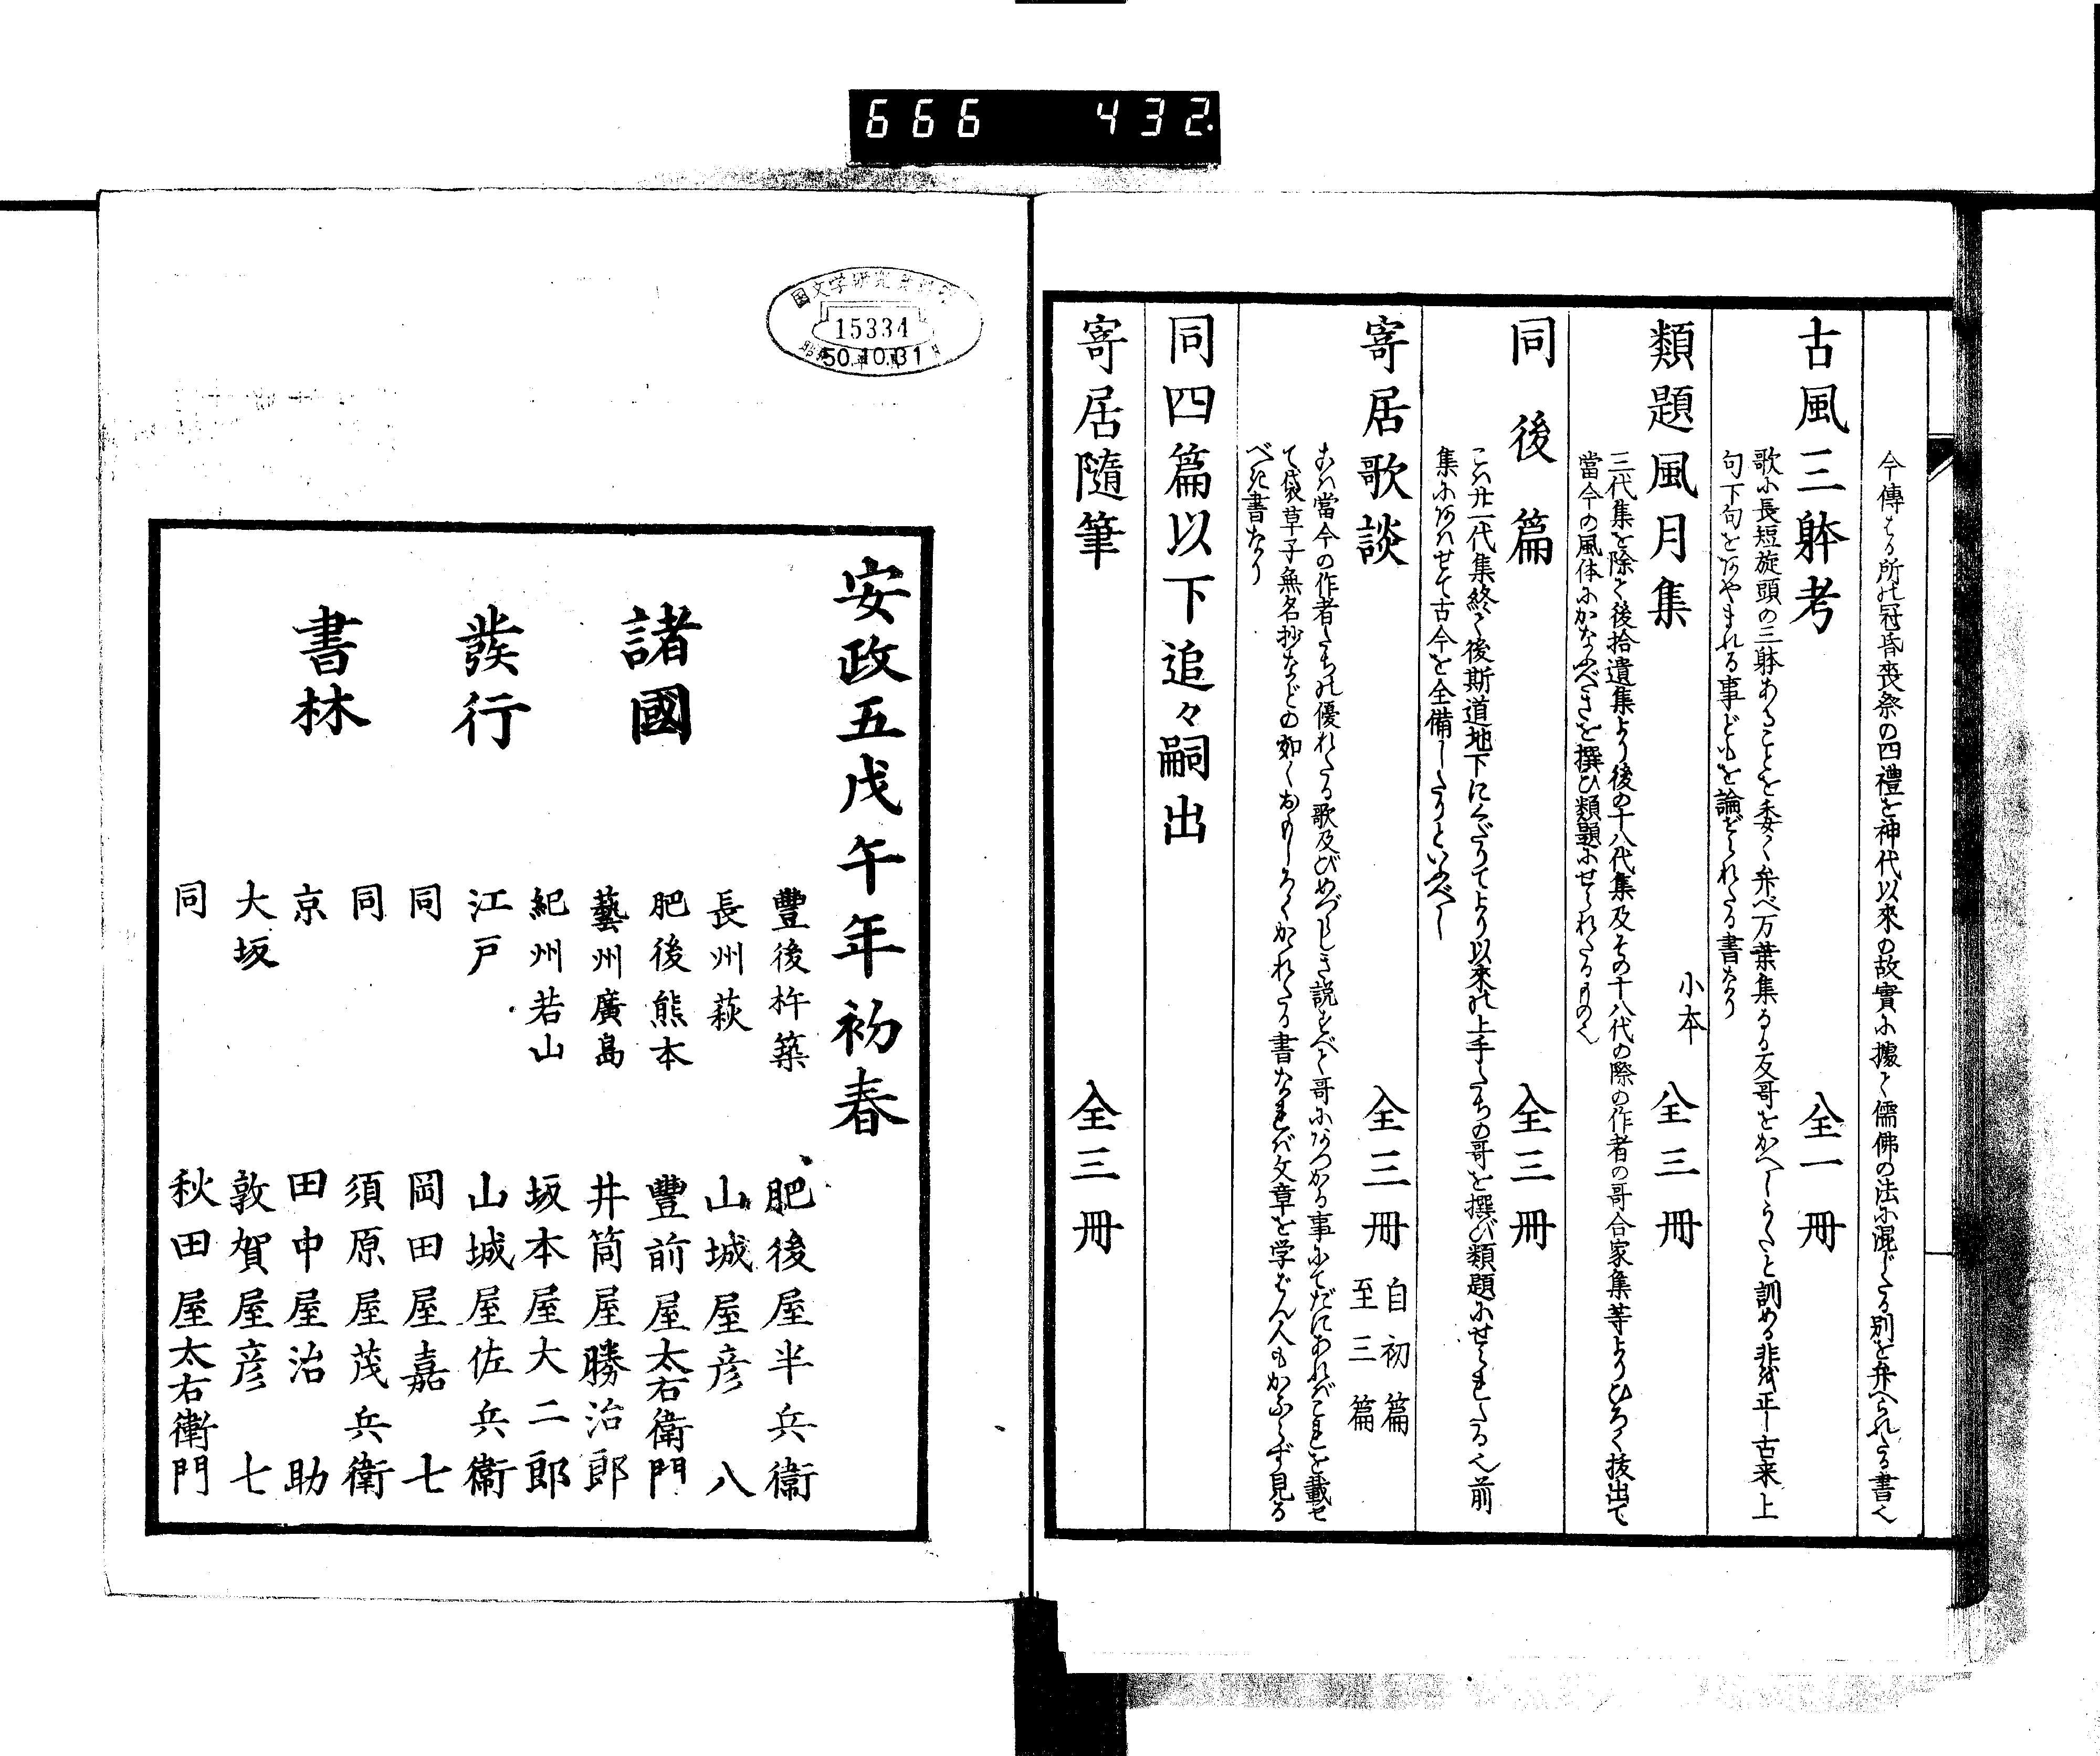 666 432.
今傳はる所の冠昏喪祭の四禮を神代以來の故實に據て儒佛の法に混じたる別を弁へられたる書也
古風三躰考 全一冊
歌に長短旋頭の三躰あることを委く弁べ万葉集なる反哥をかへしうたと訓める非を正し古来上
句下句とあやまれる事どもを論ぜられたる書なり
類題風月集 小本 全三冊
三代集を除て後拾遺集より後の十八代集及その十八代の際の作者の哥合家集等よりひろく抜出て
當今の風体にかなふべきを撰ひ類題にせられたるもの也
同後篇 全三冊
こハ廿一代集終て後斯道地下にくだりてより以來の上手たちの哥を撰び類題にせられたる也前
集にあハせて古今を全備したりといふべし
寄居歌談 全三冊 自初篇
至三篇
こハ當今の作者たちの優れたる歌及びめづらしき説すべて哥にあづかる事にてだにあればこれを載せ
て袋草子無名抄などの如くおもしろくかかれたる書なれバ文章を学ばん人もかならず見る
べき書なり
同四篇以下追々嗣出
寄居隨筆 全三冊
国文学研究資料館
15334
昭和50.10.31
安政五戊午年初春
諸國
發行
書林
豐後杵築 肥後屋半兵衞
長州萩 山城屋彦八
肥後熊本 豐前屋太右衛門
藝州廣島 井筒屋勝治郎
紀州若山 坂本屋大二郎
江戸 山城屋佐兵衞
同 岡田屋嘉七
同 須原屋茂兵衛
京 田中屋治助
大坂 敦賀屋彦七
同 秋田屋太右衛門